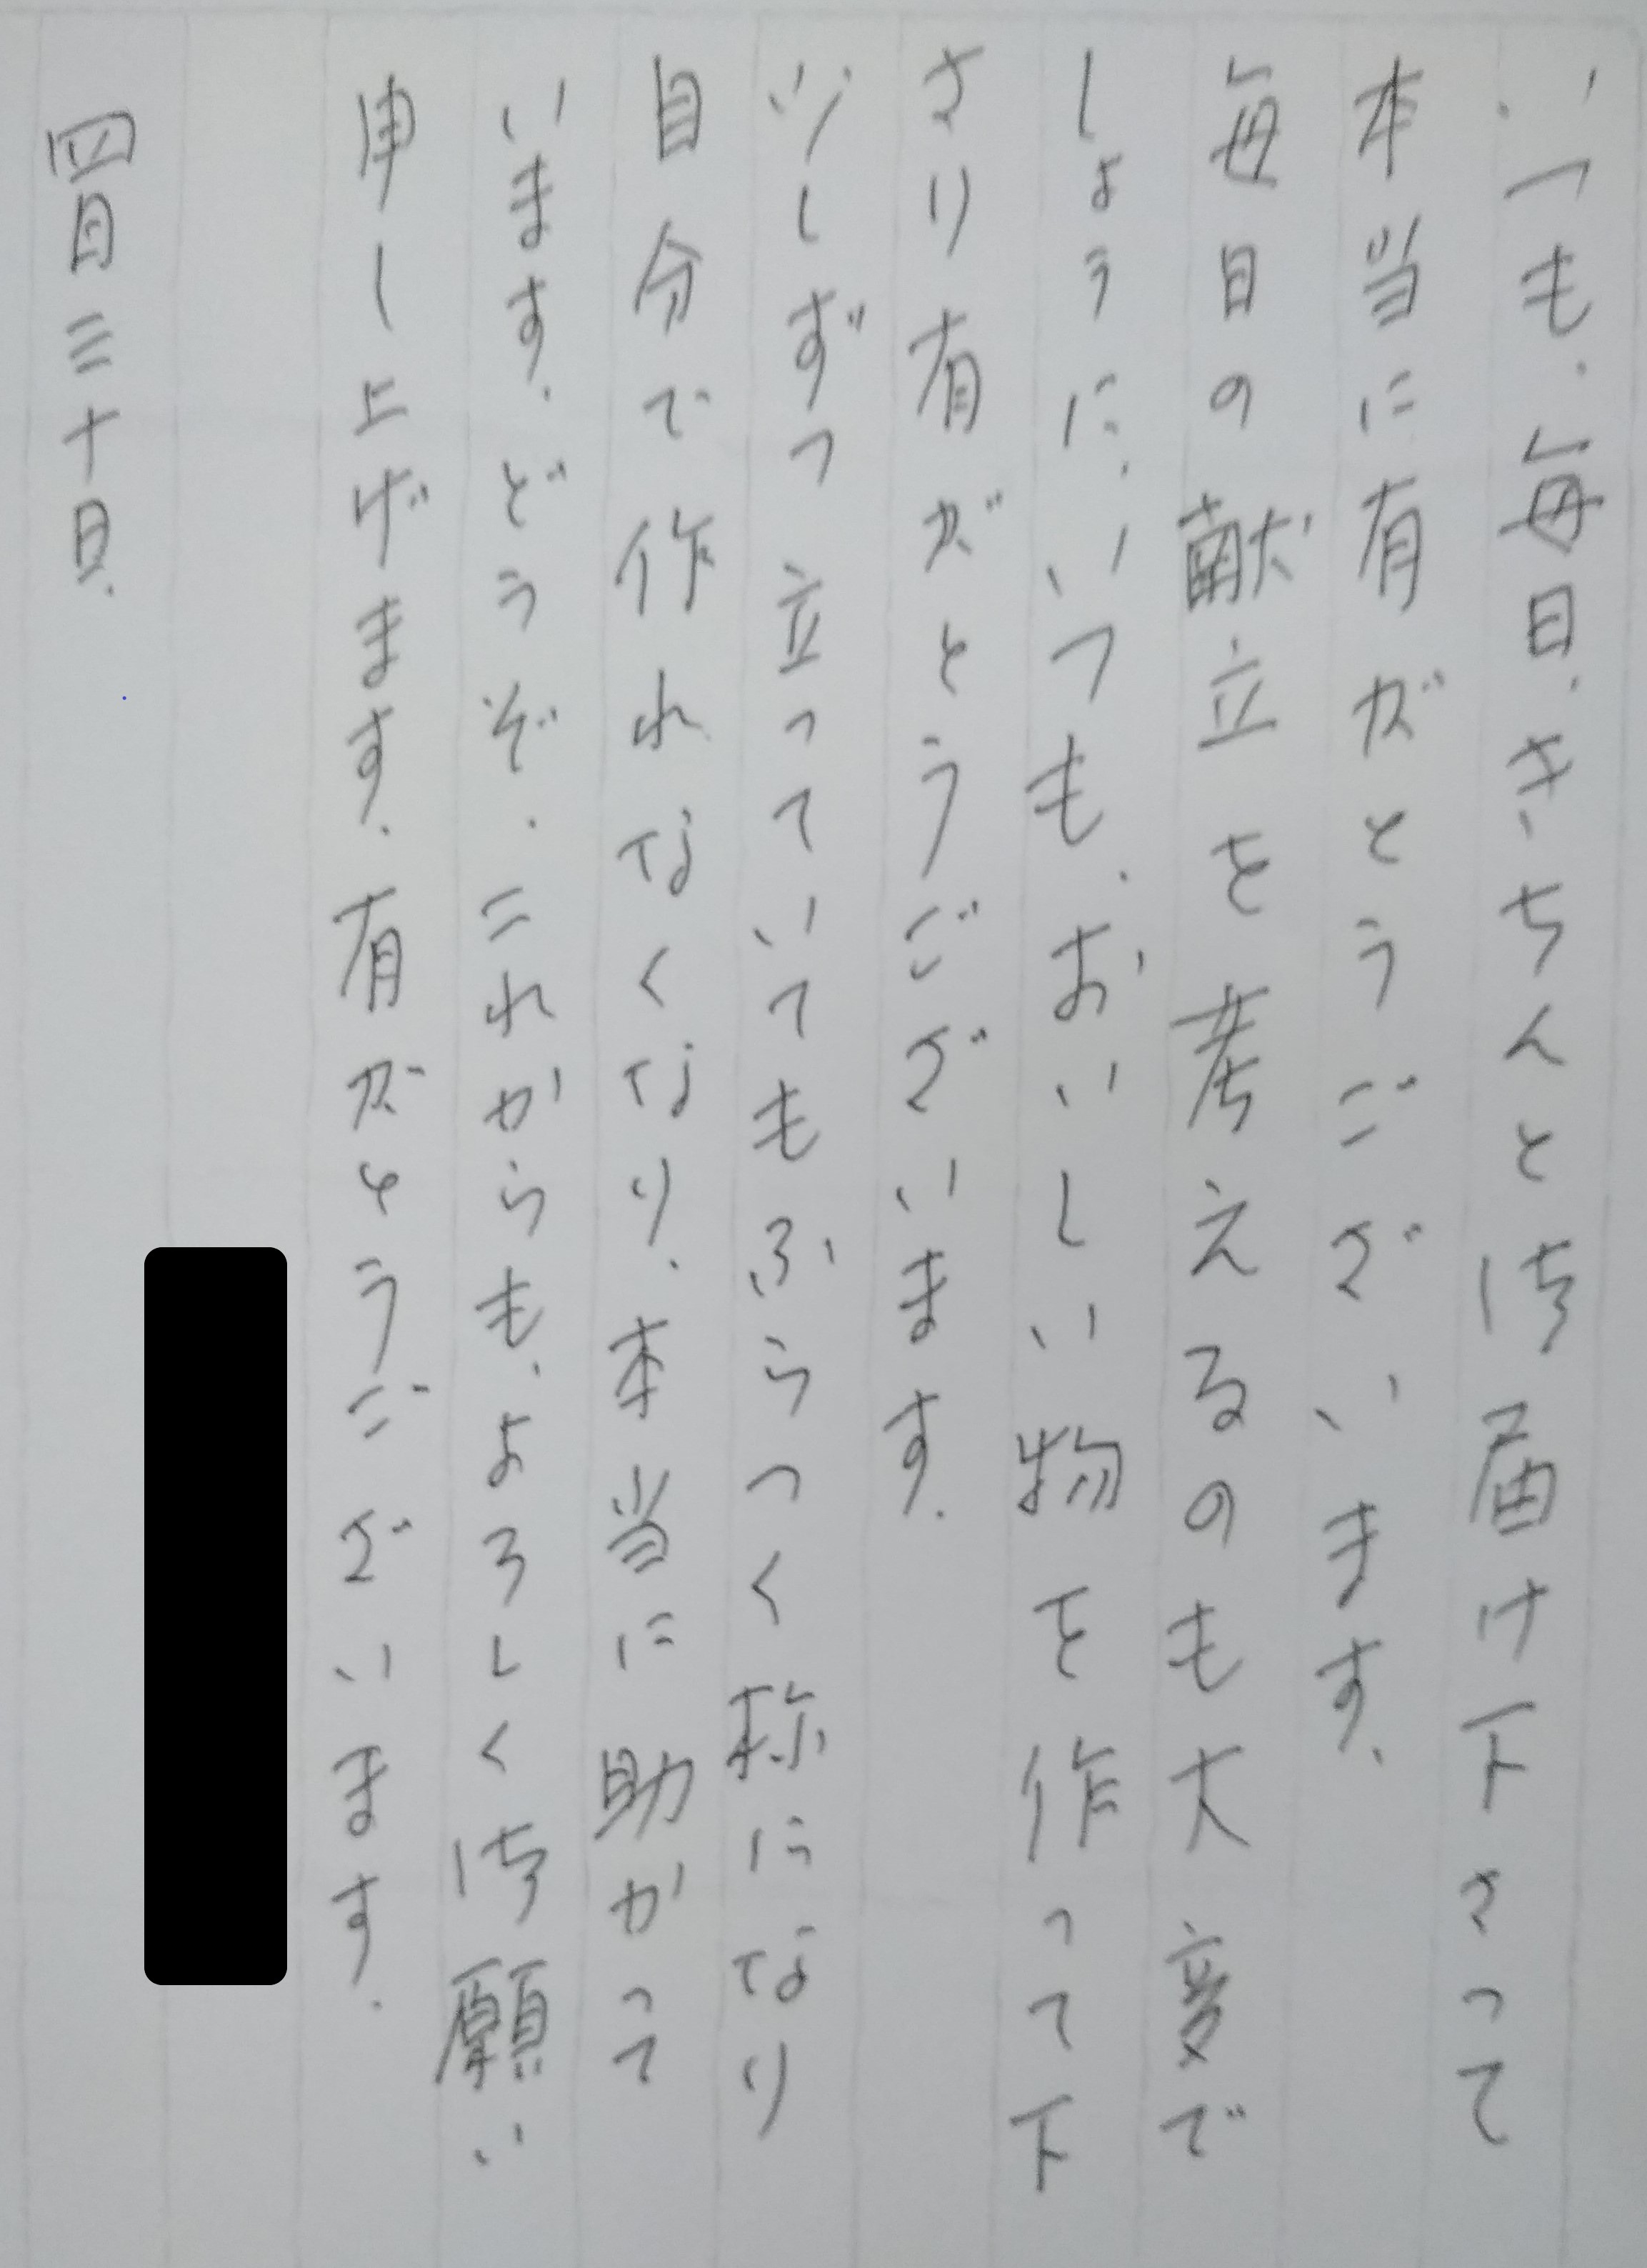 いつも、毎日、きちんと御届け下さって
本当に有がとうございます、
毎日の献立を考えるのも大変で
しょうに、いつも、おいしい物を作って下
さり有がとうございます、
少しずつ立っていてもふらつく様になり
自分で作れなくなり、本当に助かって
います、どうぞ、これからも、よろしく御願い
申し上げます、有がとうございます、
四月三十日、